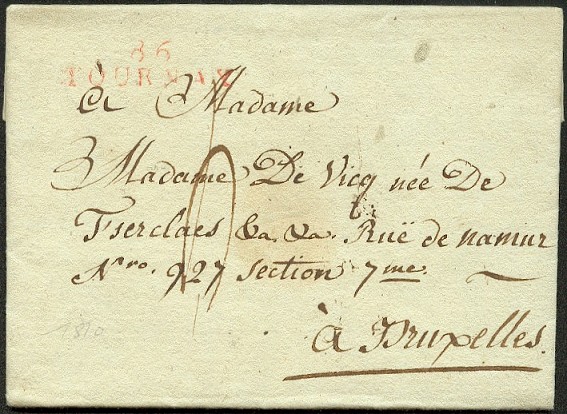 86
TOURNAY
à Madame
Madame De Vicq née De
Tserclaes &a. &a. Ruë de namur
Nro. 927 section 7me.
à Bruxelles.
1810